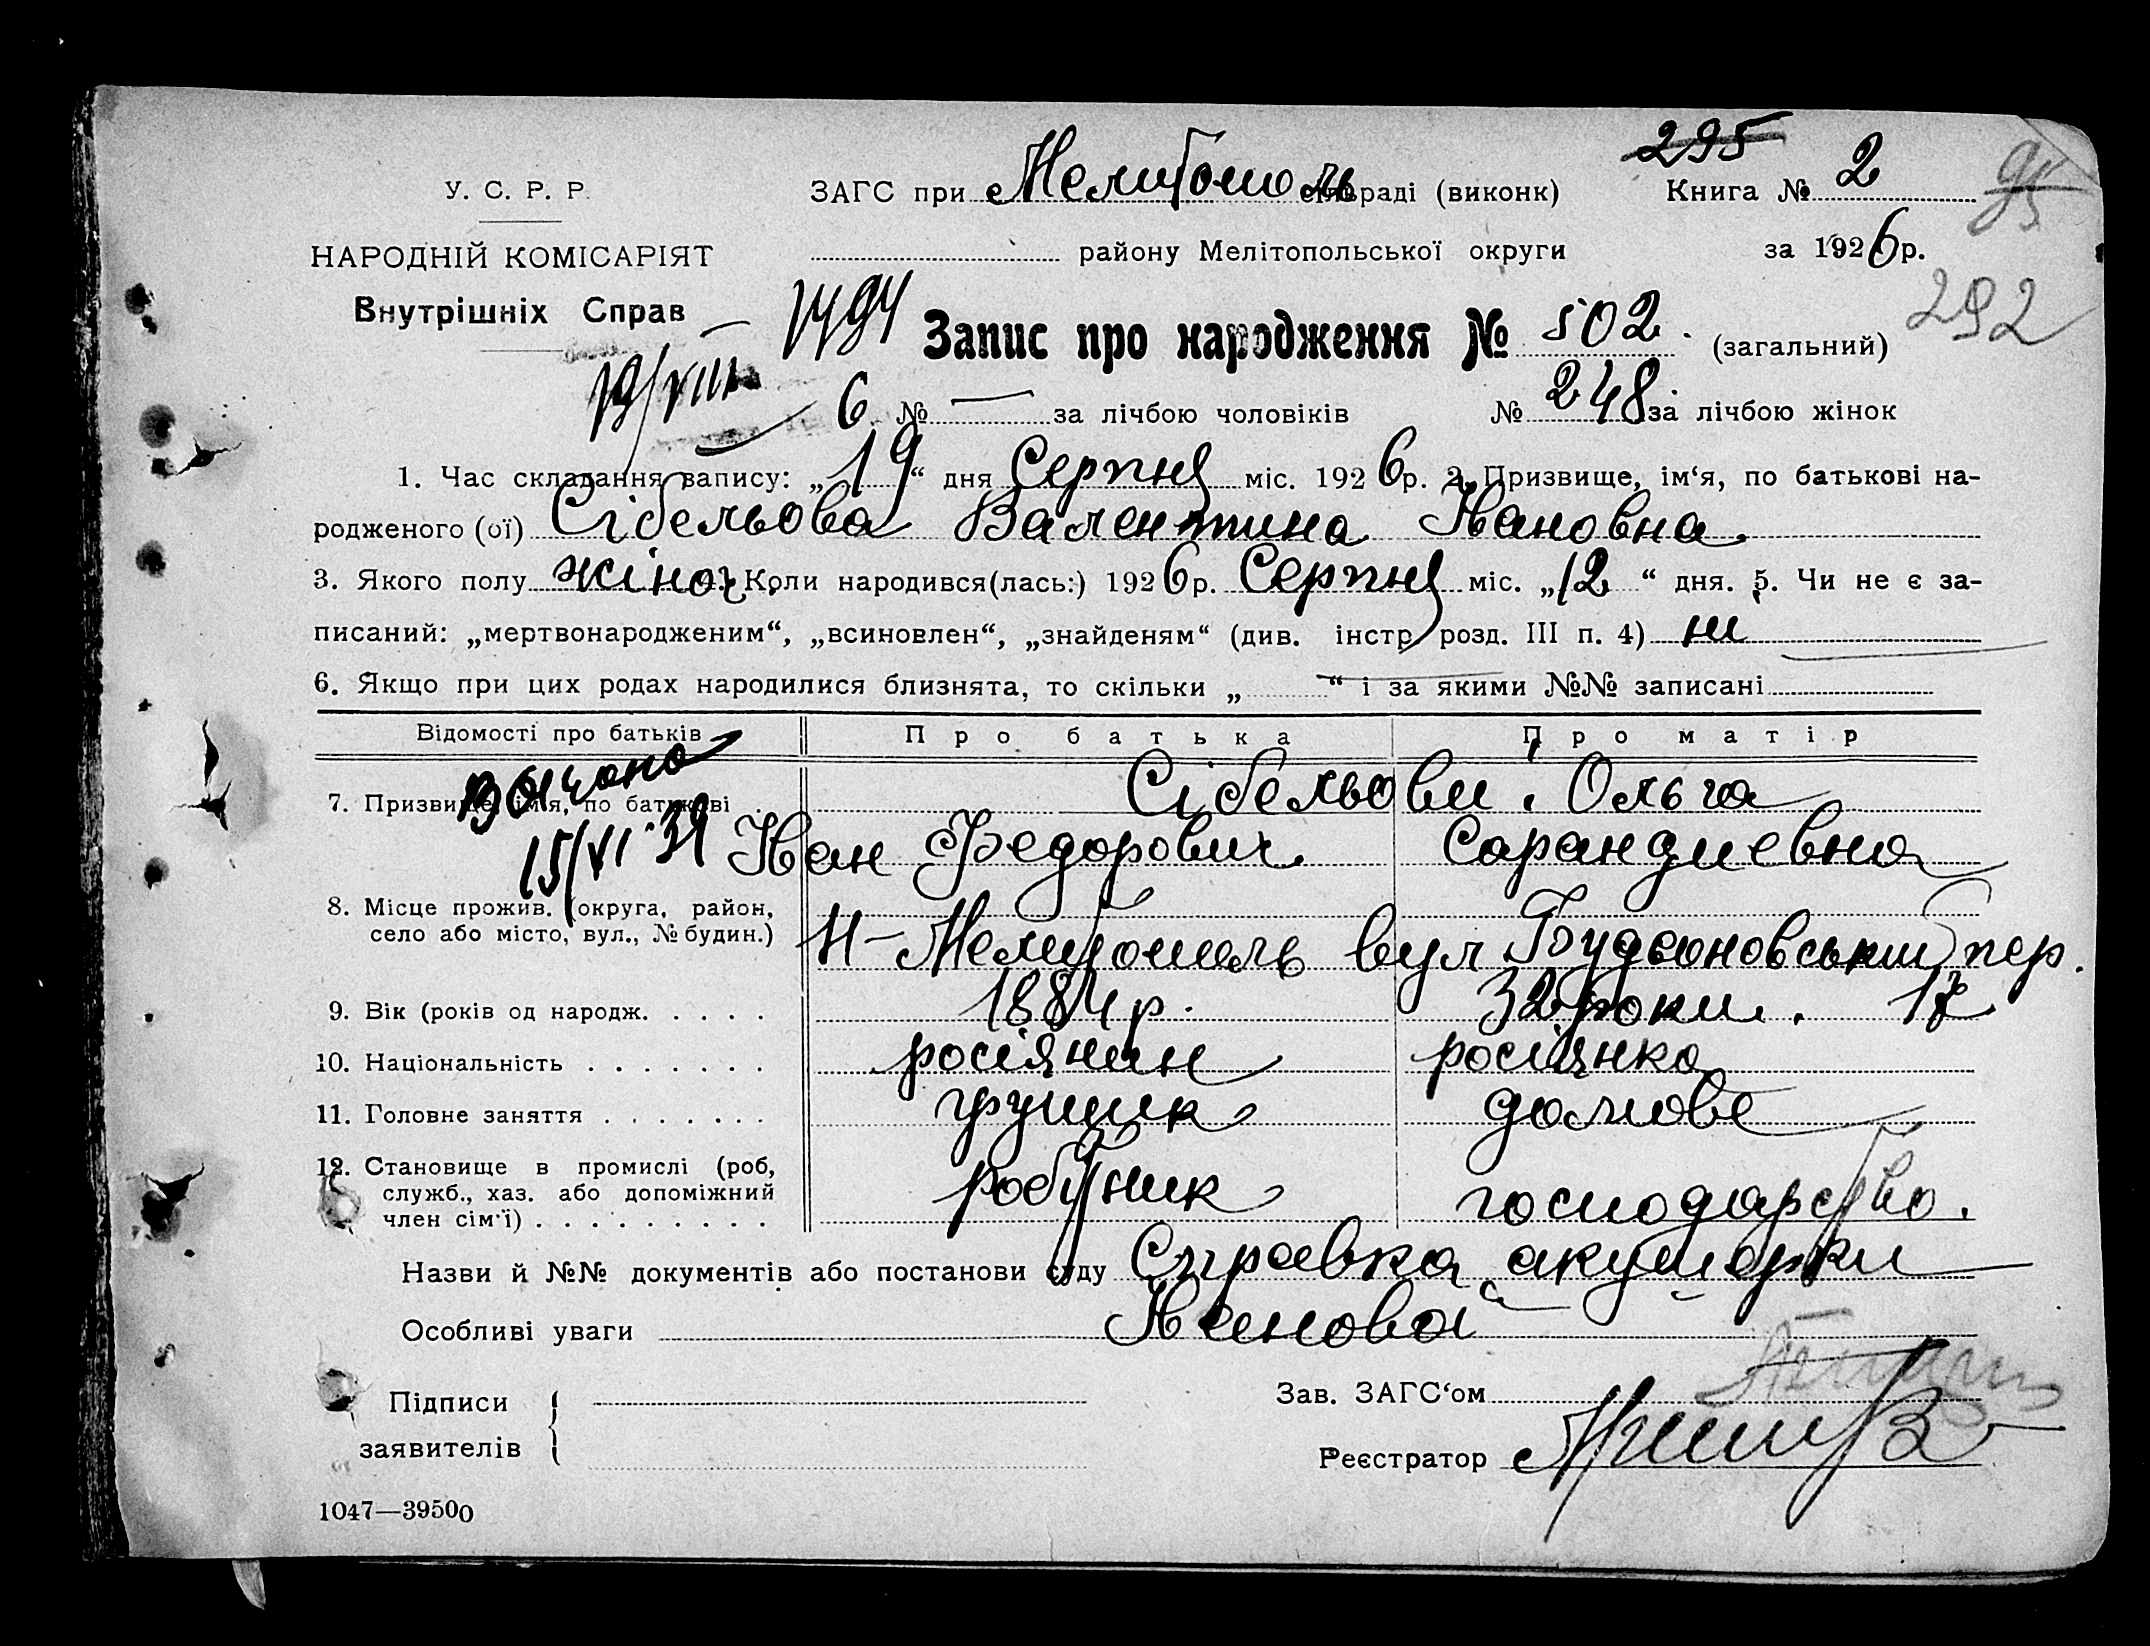 295
У. С. Р. Р. ЗАГС при Мелитополь сільраді (виконк) Книга № 2 95
НАРОДНІЙ КОМІСАРІЯТ району Мелітопольської округи за 1926 р.
Внутрішніх Справ 1494 Запис про народження № 502 (загальний) 292
19/VIII 6 № — за лічбою чоловіків № 248 за лічбою жінок
1. Час складання запису: „19“ дня Серпня міс. 1926 р. 2. Призвище, ім‘я, по батькові на-
родженого (ої) Сібельова Валентина Івановна
3. Якого полу жіноч. 4. Коли народився(лась:) 1926 р. Серпня міс. „12“ дня. 5. Чи не є за-
писаний: „мертвонародженим“, „всиновлен“, „знайденям“ (див. інстр розд. III п. 4) ні
6. Якщо при цих родах народилися близнята, то скільки „ “ і за якими №№ записані
Відомості про батьків Про батька Про матір
7. Призвище, ім‘я, по батькові Сібельови. Ольга
15/VI 39 Іван Федорович Сарандиевна
8. Місце прожив. (округа, район,
село або місто, вул., № будин.) Н-Мелитополь вул Будьоновський пер.
9. Вік (років од народж. . . . . 1884 р. 32 роки. 17
10. Національність . . . . . . . росіянин росіянка
11. Головне заняття . . . . . . . грущик домове
12. Становище в промислі (роб,
служб., хаз. або допоміжний робітник господарство.
член сім‘ї) . . . . . . . . .
Назви й №№ документів або постанови суду Справка акушорки
Особливі уваги Івановой
Підписи Зав. ЗАГС‘ом
заявителів Реєстратор
1047—39500